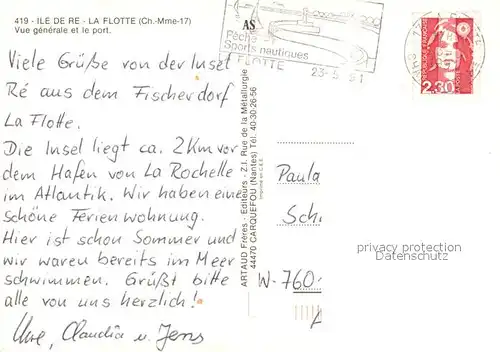 419 - ILE DE RE - LA FLOTTE (Ch.-Mme-17)
Vue générale et le port.
Viele Grüße von der Insel
Ré aus dem Fischerdorf
La Flotte.
Die Insel liegt ca. 2 Km vor
dem Hafen von La Rochelle
im Atlantik. Wir haben eine
schöne Ferienwohnung.
Hier ist schon Sommer und
wir waren bereits im Meer
schwimmen. Grüßt bitte
alle von uns herzlich!
Uwe, Claudia u. Jens
AS
Pêche
Sports nautiques
FLOTTE
23-5 91
ARTAUD Frères - Editeurs - Z.I. Rue de la Métallurgie
44470 CARQUEFOU (Nantes) Tél. 40-30-26-56
Imprimé en C.E.E.
2,30
Paula
Sch
privacy protection
Datenschutz
W-760